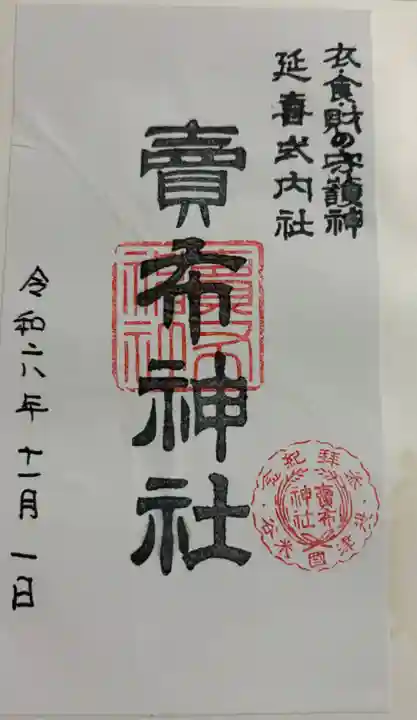 衣・食・財の守護神
延喜式内社
賣布神社
賣布
神社
令和六年十一月1日